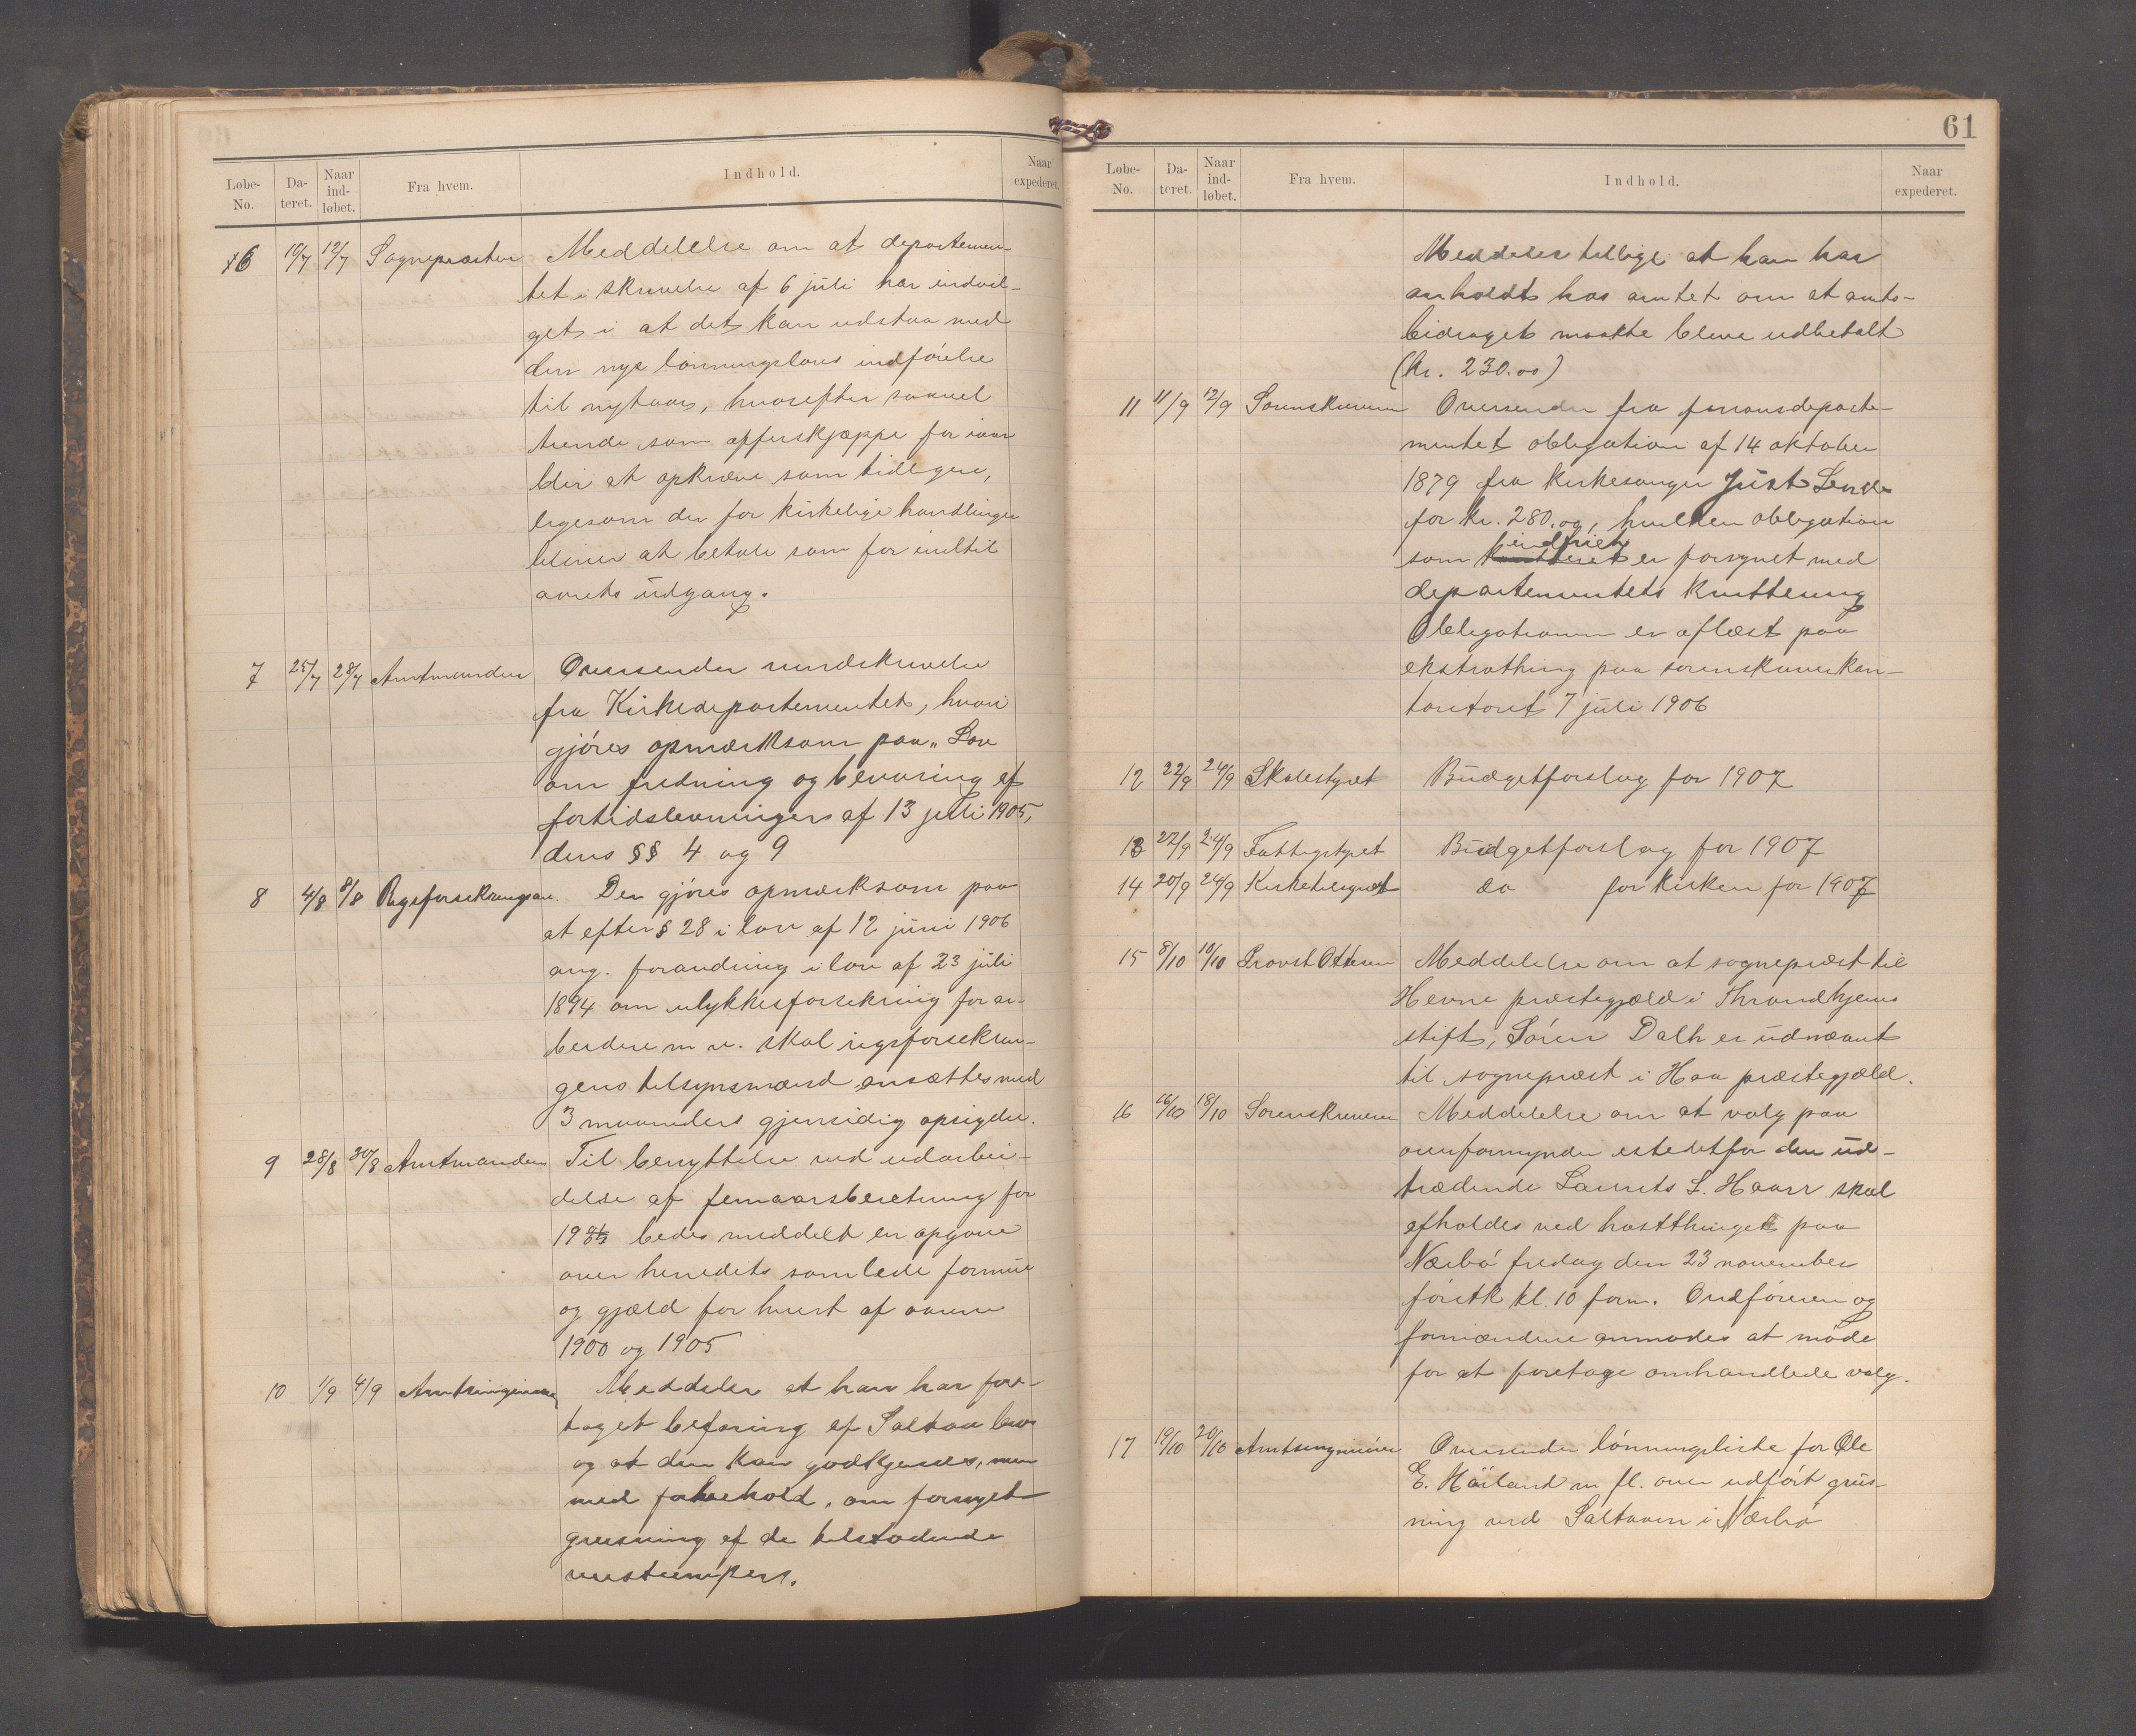 Løbe-No. Dateret. Naar indløbet. Fra hvem. Indhold. Naar expederet.
6 10/7 12/7 Sognepresten Meddelelse om at departemen-
tet i skrivelse af 6 juli har indvil-
get i at det kan udstaa med
den nye lønningslovs indførelse
til nytaar, hvorefter saavel
tiende som offerskjæppe for iaar
blir at opkræve som tidligere,
ligesom der for kirkelige handlinger
bliver at betale som før indtil
aarets udgang.
7 25/7 28/7 Amtmanden Oversender rundskrivelse
fra Kirkedepartementet, hvori
gjøres opmærksom paa „Lov
om fredning og bevaring af
fortidslevninger af 13 juli 1905,
dens §§ 4 og 9
8 4/8 8/8 Rigsforsikringsan. Der gjøres opmærksom paa
at efter § 28 i lov af 12 juni 1906
ang. forandring i lov af 23 juli
1894 om ulykkesforsikring for ar-
beidere m v. skal rigsforsikrin-
gens tilsynsmænd ansættes med
3 maaneders gjensidig opsigelse.
9 28/8 30/8 Amtmanden Til benyttelse ved udarbei-
delse af femaarsberetning for
19 01/05 bedes meddelt en opgave
over herredets samlede formue
og gjæld for hvert af aarene
1900 og 1905
10 1/9 4/9 Amtsingeniøren Meddeler at han har fore-
taget befaring af Saltaa bro
og at den kan godkjendes, men
med forbehold, om fornyet
grusning af de tilstødende
veistumper.
61
Løbe-No. Dateret. Naar indløbet. Fra hvem. Indhold. Naar expederet.
Meddeler tillige at han har
anholdt hos amtet om at amts-
bidraget maatte blive udbetalt
(kr. 230.00)
11 11/9 12/9 Sorenskriveren Oversender fra finansdeparte-
mentet obligation af 14 oktober
1879 fra kirkesanger Just Lende
for kr. 280.00, hvilken obligation
indfriet
som kvitteret er forsynet med
departementets kvittering
Obligationen er aflæst paa
ekstrathing paa sorenskriverkon-
toritoret 7 juli 1906
12 22/9 24/9 Skolestyret Budgetforslag for 1907
13 22/9 24/9 Fattigstyret Budgetforslag for 1907
14 20/9 24/9 Kirketilsynet do for kirken for 1907
15 8/10 10/10 Provst Ottesen Meddelelse om at sogneprest til
Hevne prestegjæld i Throndhjems
stift, Sören Dalh er udnævnt
til sogneprest i Haa præstegjæld.
16 16/10 18/10 Sorenskriveren Meddelelse om at valg paa
overformynder istedetfor den ud-
trædende Laurits L. Haarr skal
afholdes ved høstthinget paa
Nærbø fredag den 23 november
førstk kl. 10 form. Ordføreren og
formændene anmodes at møde
for at foretage omhandlede valg.
17 19/10 20/10 Amtsingeniøren Oversender lønningsliste for Ole
E. Höiland m fl. over udført grus-
ning ved Saltaaen i Nærbø